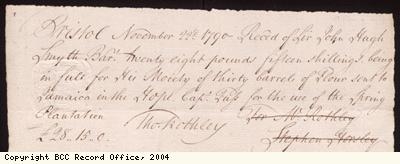 Bristol November 22d. 1790 Recd of Sir John Hugh
Smyth Bart. Twenty eight pounds fifteen shillings being
in full for His Moiety of thirty Barrels of Flour sent to
Jamaica in the Hope Capt. for the use of the Spring
Plantation
For Mr Rothley
Thos. Rothley
Stephen Horsley
£28..15..0.
Copyright BCC Record Office, 2004